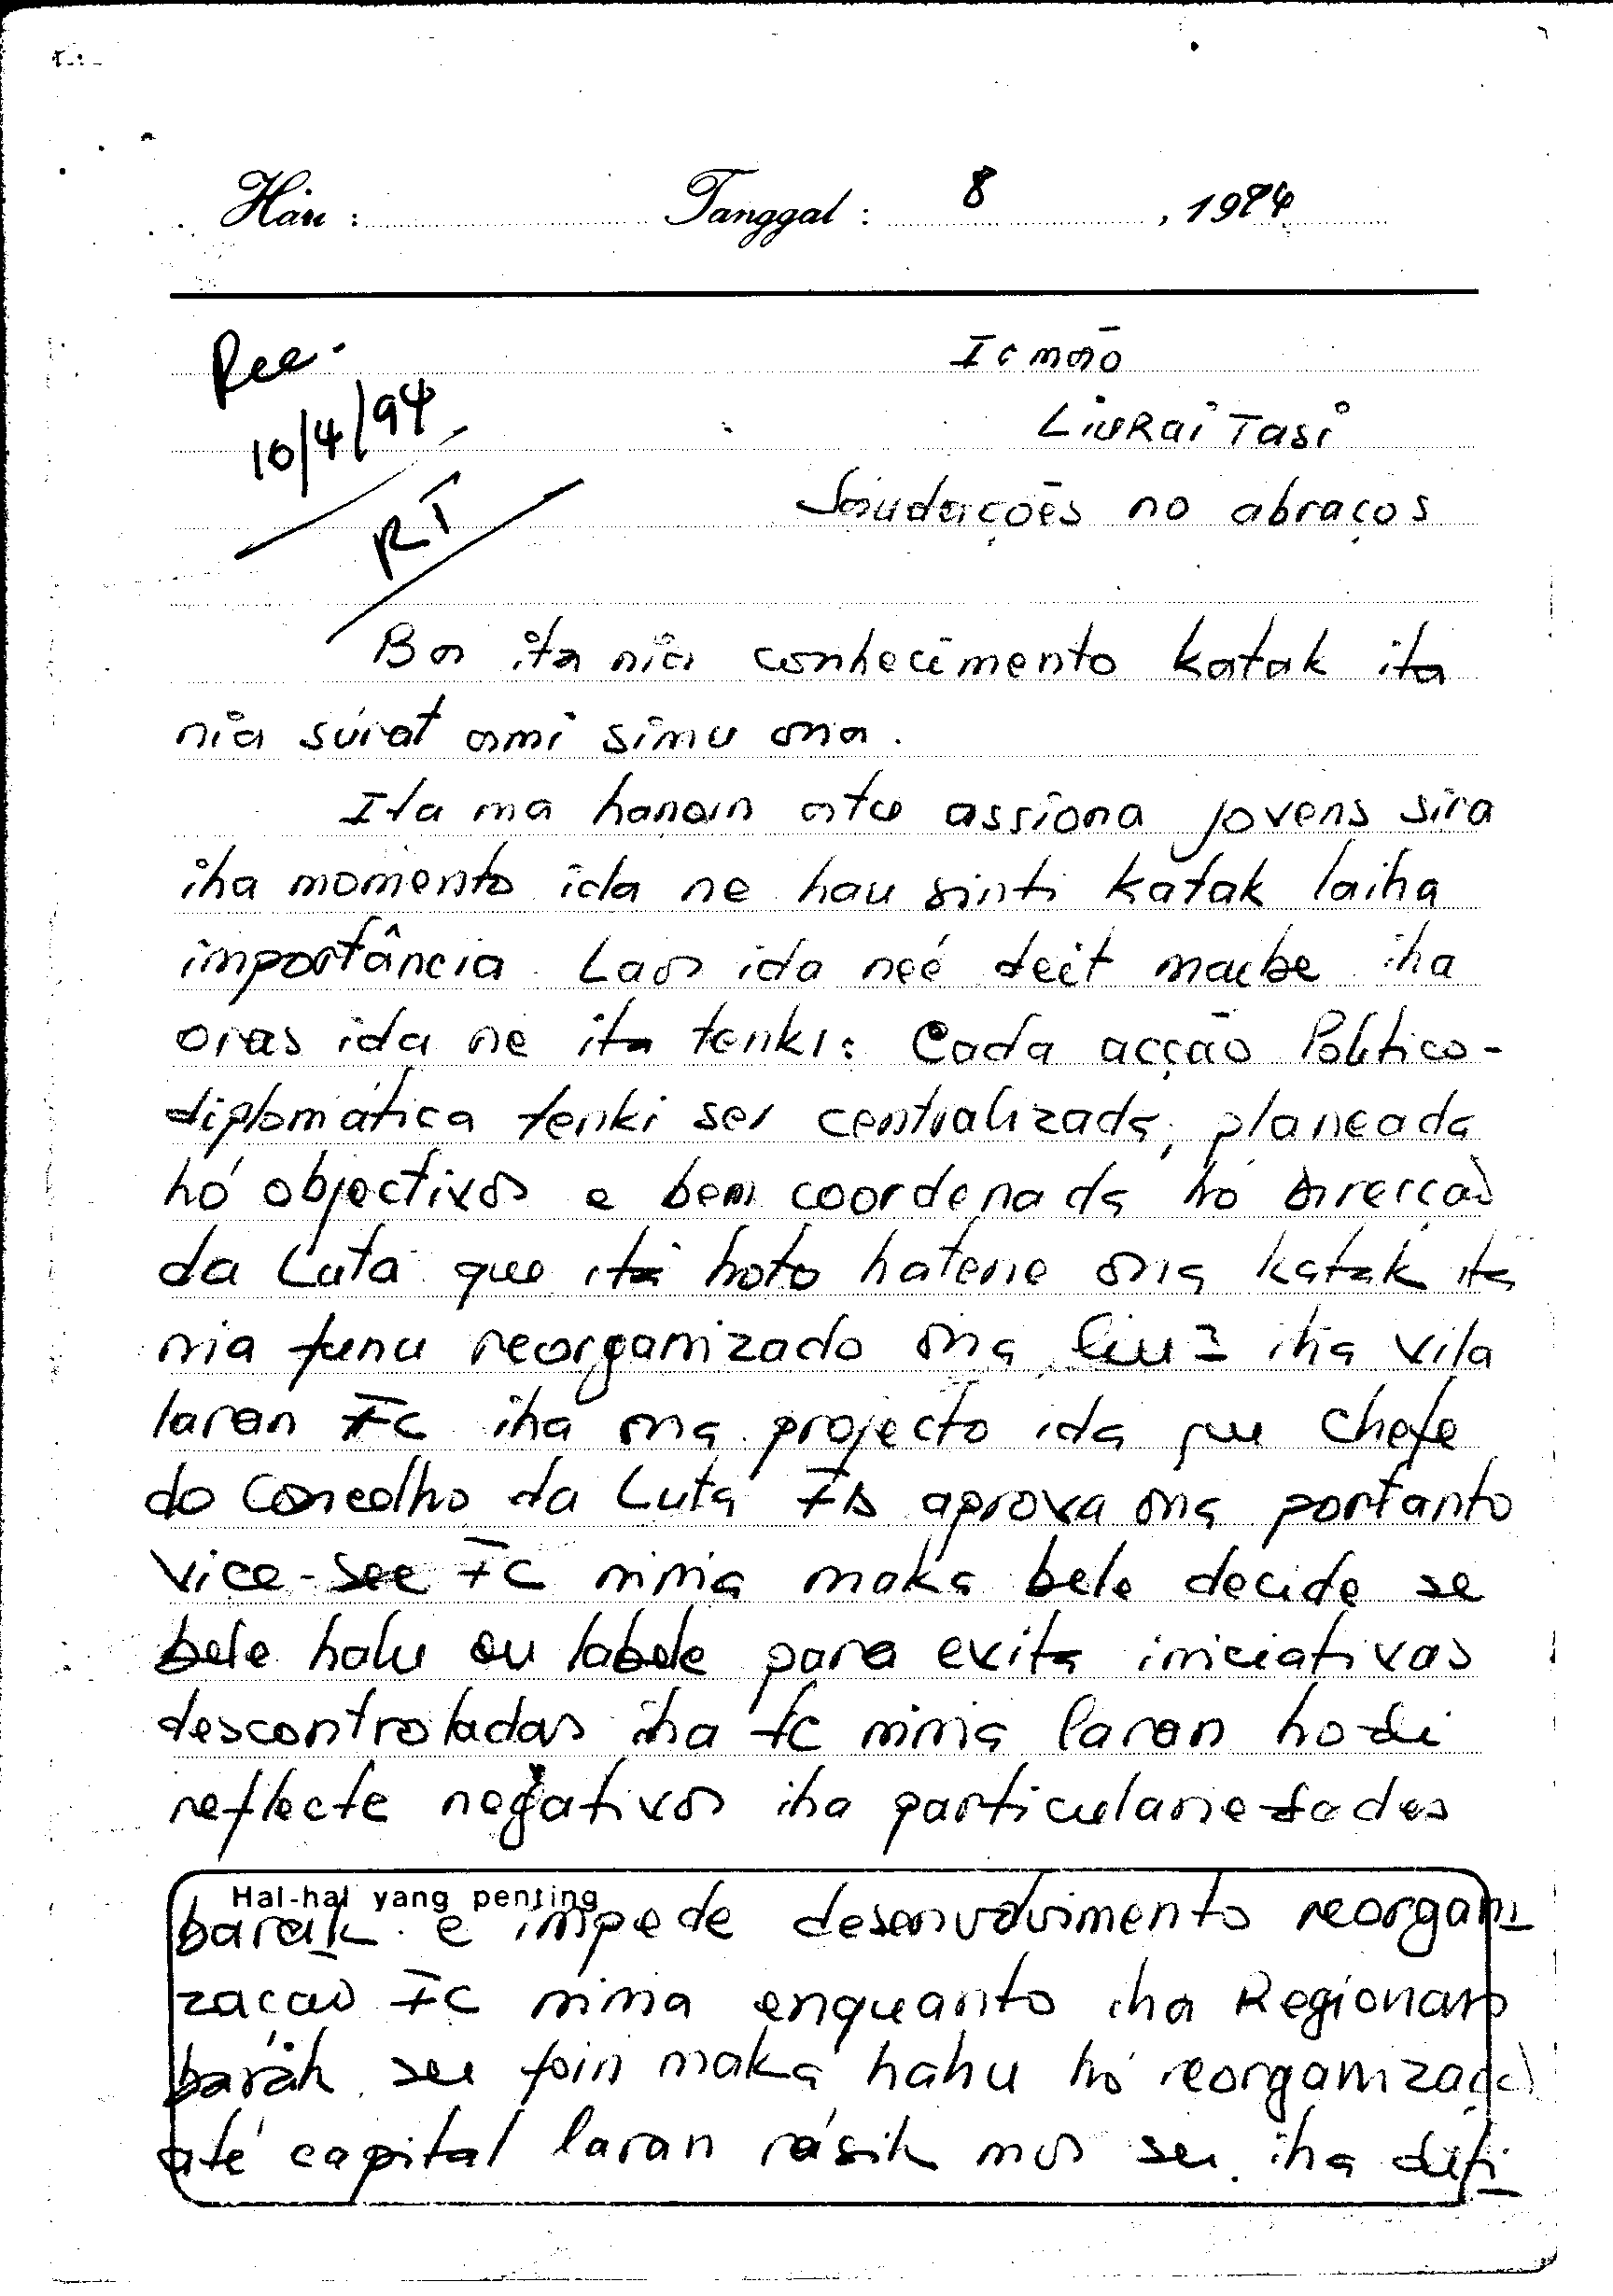 Hari : Tanggal : 8 , 1994
Rec.
10/4/94
RT
Irmão
LiuRai Tasi
Saudações no abraços
Ba ita nia conhecimento katak ita
nia súrat ami simu ona.
Ita ma hanoin atu assiona jovens sira
iha momento ida ne hau sinti katak laiha
importância. Laos ida neé deit maibe iha
oras ida ne ita tenki: Cada acção Politico-
diplomática tenki ser centralizada, planeada
hó objectivos e bem coordenada hó Direcção
da Luta que ita hoto hatene ona katak ita
nia funu reorganizado ona, liu2 iha vila
laran FC iha ona projecto ida que Chefe
do Concelho da Luta FA aprova ona portanto
Vice-See FC ninia maka bele decide se
bele halu ou labele para evita iniciativas
descontroladas iha FC ninia laran hodi
reflecte negativos iha particulariedades
Hal-hal yang penting
barak e impede desenvolvimento reorgani-
zação FC ninia enquanto iha Regionais
barák seu foin maka hahu hó reorganização
até capital laran rásik mos sei iha difi-